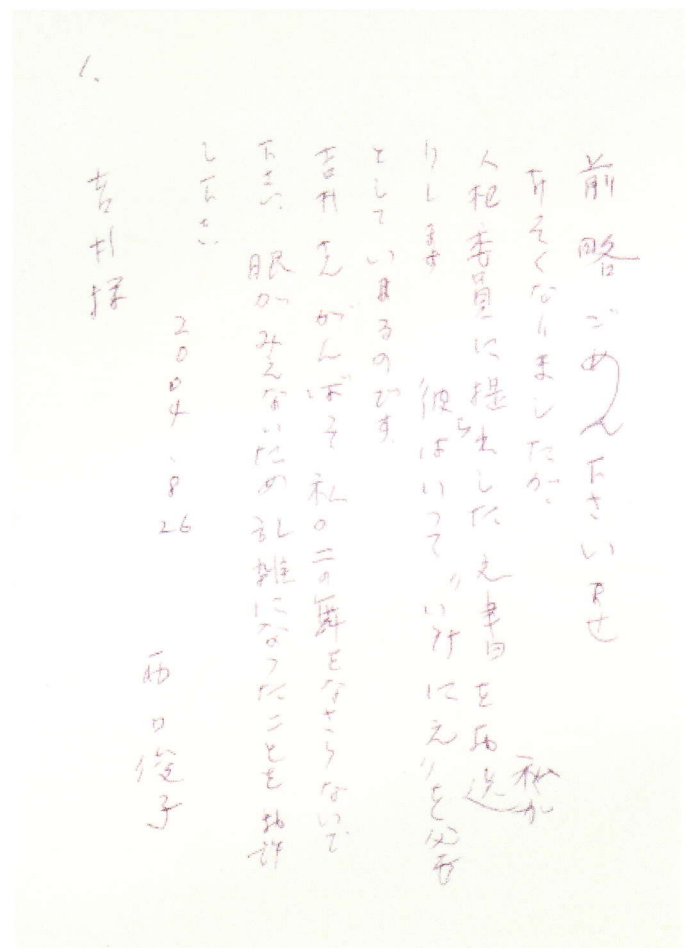 1.
前略ごめん下さいませ
おそくなりましたが、私が
人权委員に提出した文書をお送
りします 彼らはいって
としているのです。
吉村さんがんばって私の二の舞をなさらないで
下さい。眼がみえないため乱雑になったことをお許
し下さい
2004.8.26
西口俊子
吉村様